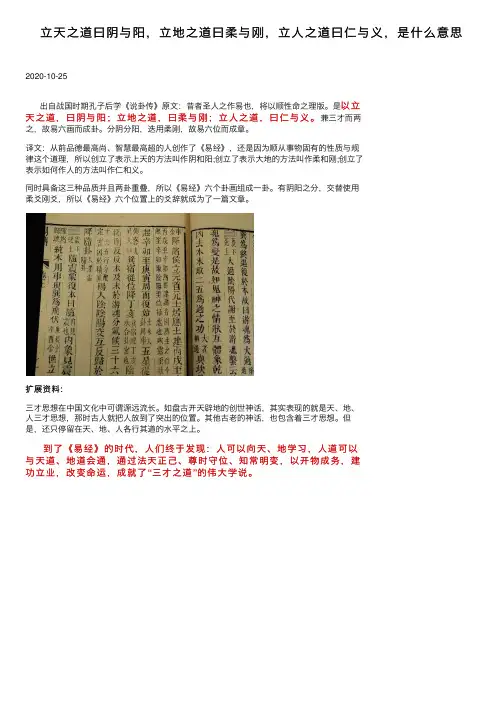 立天之道曰阴与阳，立地之道曰柔与刚，立人之道曰仁与义，是什么意思
2020-10-25
出自战国时期孔子后学《说卦传》原文：昔者圣人之作易也，将以顺性命之理版。是以立
天之道，曰阴与阳；立地之道，曰柔与刚；立人之道，曰仁与义。兼三才而两
之，故易六画而成卦。分阴分阳，迭用柔刚，故易六位而成章。
译文：从前品德最高尚、智慧最高超的人创作了《易经》，还是因为顺从事物固有的性质与规
律这个道理，所以创立了表示上天的方法叫作阴和阳;创立了表示大地的方法叫作柔和刚;创立了
表示如何作人的方法叫作仁和义。
同时具备这三种品质并且两卦重叠，所以《易经》六个卦画组成一卦。有阴阳之分，交替使用
柔爻刚爻，所以《易经》六个位置上的爻辞就成为了一篇文章。
扩展资料：
三才思想在中国文化中可谓源远流长。如盘古开天辟地的创世神话，其实表现的就是天、地、
人三才思想，那时古人就把人放到了突出的位置。其他古老的神话，也包含着三才思想。但
是，还只停留在天、地、人各行其道的水平之上。
到了《易经》的时代，人们终于发现：人可以向天、地学习，人道可以
与天道、地道会通，通过法天正己、尊时守位、知常明变，以开物成务，建
功立业，改变命运，成就了“三才之道”的伟大学说。